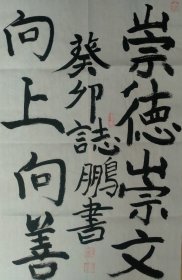 崇德崇文
向上向善
癸卯誌鵬書